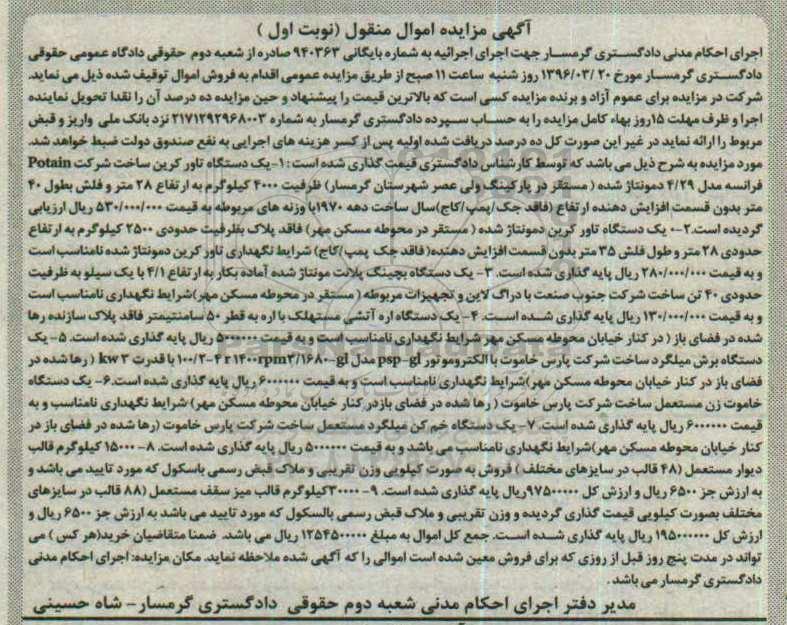 آگهی مزایده اموال منقول (نوبت اول )
اجرای احکام مدنی دادگستری گرمسار جهت اجرای اجرائیه به شماره بایگانی ۹۴۰۳۶۳ صادره از شعبه دوم حقوقی دادگاه عمومی حقوقی
دادگستری گرمسار مورخ ۲۰ /۱۳۹۶/۰۳ روز شنبه ساعت ۱۱ صبح از طریق مزایده عمومی اقدام به فروش اموال توقیف شده ذیل می نماید.
شرکت در مزایده برای عموم آزاد و برنده مزایده کسی است که بالاترین قیمت را پیشنهاد و حین مزایده ده درصد آن را نقدا تحویل نماینده
اجرا و ظرف مهلت ۱۵روز بهاء کامل مزایده را به حساب سپرده دادگستری گرمسار به شماره ۲۱۷۱۲۹۲۹۶۸۰۰۳ نزد بانک ملی واریز و قبض
مربوط را ارائه نماید در غیر این صورت کل ده درصد دریافت شده اولیه پس از کسر هزینه های اجرایی به نفع صندوق دولت ضبط خواهد شد.
مورد مزایده به شرح ذیل می باشد که توسط کارشناس دادگستری قیمت گذاری شده است : ۱-یک دستگاه تاور کرین ساخت شرکت Potain
فرانسه مدل ۴/۲۹ دمونتاژ شده ( مستقر در پارکینگ ولی عصر شهرستان گرمسار) ظرفیت ۴۰۰۰ کیلوگرم به ارتفاع ۲۸ متر و فلش بطول ۴۰
متر بدون قسمت افزایش دهنده ارتفاع (فاقد جک/پمپ/کاج)سال ساخت دهه ۱۹۷۰با وزنه های مربوطه به قیمت ۵۳۰/۰۰۰/۰۰۰ ریال ارزیابی
گردیده است.۲-۰ یک دستگاه تاور کرین دمونتاژ شده ( مستقر در محوطه مسکن مهر) فاقد پلاک بظرفیت حدودی ۲۵۰۰ کیلوگرم به ارتفاع
حدودی ۲۸ متر و طول فلش ۳۵ متر بدون قسمت افزایش دهنده( فاقد جک پمپ/کاج) شرایط نگهداری تاور کرین دمونتاژ شده نامناسب است
و به قیمت ۲۸۰/۰۰۰/۰۰۰ ریال پایه گذاری شده است. ۳- یک دستگاه بچینگ پلانت مونتاژ شده آماده بکار به ارتفاع ۴/۱ با یک سیلو به ظرفیت
حدودی ۴۰ تن ساخت شرکت جنوب صنعت با دراگ لاین و تجهیزات مربوطه ( مستقر در محوطه مسکن مهر)شرایط نگهداری نامناسب است
و به قیمت ۱۳۰/۰۰۰/۰۰۰ ریال پایه گذاری شده است. ۴- یک دستگاه اره آتشی مستهلک با اره به قطر ۵۰ سامتیمتر فاقد پلاک سازنده رها
شده در فضای باز ( در کنار خیابان محوطه مسکن مهر شرایط نگهداری نامناسب است و به قیمت ۵۰۰۰۰۰۰ ریال پایه گذاری شده است. ۵- یک
دستگاه برش میلگرد ساخت شرکت پارس خاموت با الکتروموتور psp-gl مدل ۱۰۰/۲-۴ ۲۱۴۰۰rpm۳/۱۶۸۰-gl با قدرت kw ۳ ( رها شده در
فضای باز در کنار خیابان محوطه مسکن مهر)شرایط نگهداری نامناسب است و به قیمت ۶۰۰۰۰۰۰ ریال پایه گذاری شده است.۶- یک دستگاه
خاموت زن مستعمل ساخت شرکت پارس خاموت ( رها شده در فضای بازدر کنار خیابان محوطه مسکن مهر) شرایط نگهداری نامناسب و به
قیمت ۶۰۰۰۰۰۰ ریال پایه گذاری شده است. ۷- یک دستگاه خم کن میلگرد مستعمل ساخت شرکت پارس خاموت (رها شده در فضای باز در
کنار خیابان محوطه مسکن مهر)شرایط نگهداری نامناسب می باشد و به قیمت ۵۰۰۰۰۰۰ ریال پایه گذاری شده است. ۸- ۱۵۰۰۰ کیلوگرم قالب
دیوار مستعمل (۴۸ قالب در سایزهای مختلف ) فروش به صورت کیلویی وزن تقریبی و ملاک قبض رسمی باسکول که مورد تایید می باشد و
به ارزش جز ۶۵۰۰ ریال و ارزش کل ۹۷۵۰۰۰۰۰ریال پایه گذاری شده است. ۹- ۳۰۰۰۰کیلوگرم قالب میز سقف مستعمل (۸۸ قالب در سایزهای
مختلف بصورت کیلویی قیمت گذاری گردیده و وزن تقریبی و ملاک قبض رسمی بالسکول که مورد تایید می باشد به ارزش جز ۶۵۰۰ ریال و
ارزش کل ۱۹۵۰۰۰۰۰۰ ریال پایه گذاری شده است. جمع کل اموال به مبلغ ۱۲۵۴۵۰۰۰۰۰ ریال می باشد. ضمنا متقاضیان خرید(هر کس ) می
تواند در مدت پنج روز قبل از روزی که برای فروش معین شده است اموالی را که آگهی شده ملاحظه نماید. مکان مزایده: اجرای احکام مدنی
دادگستری گرمسار می باشد .
مدیر دفتر اجرای احکام مدنی شعبه دوم حقوقی دادگستری گرمسار- شاه حسینی